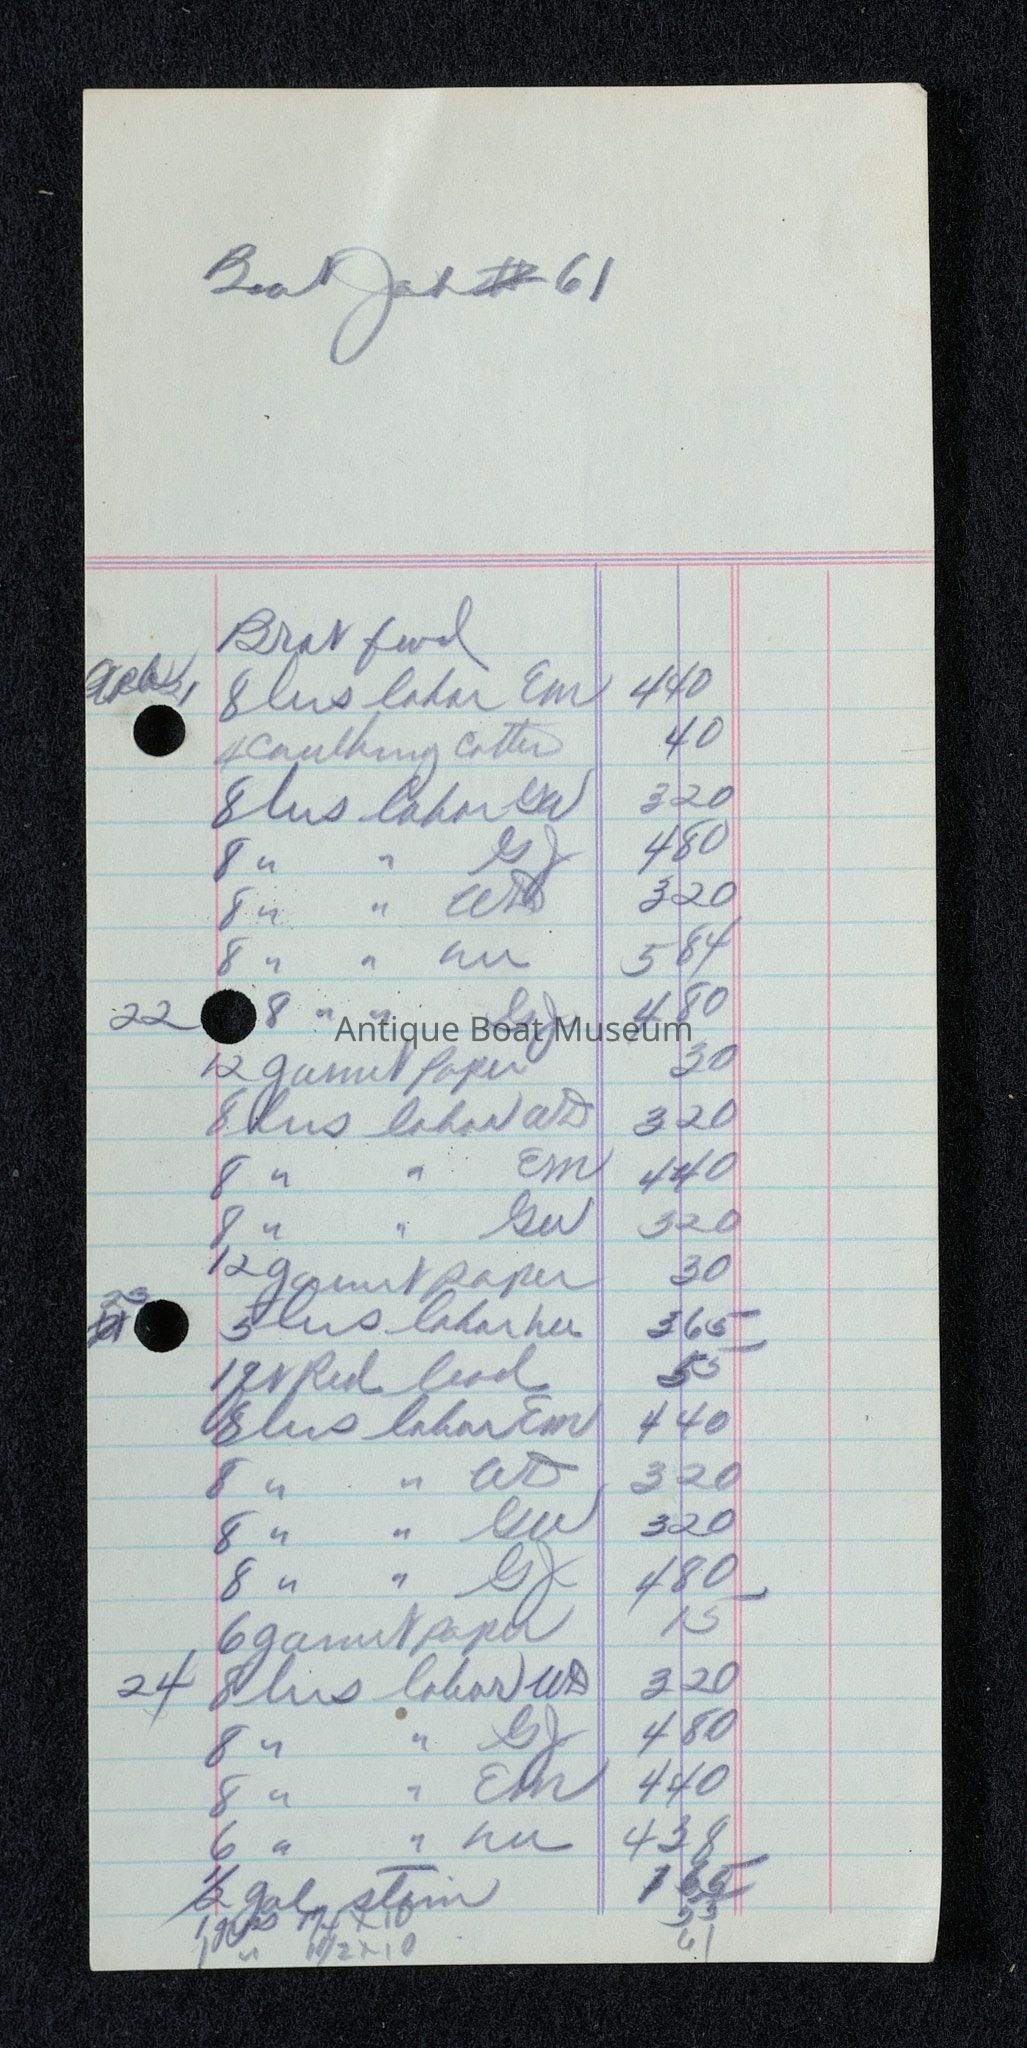 Boat Job # 61
Brot fwd
21 8 hrs labor Em 440
caulking cotton 40
8 hrs labor GW 320
8 " " GJ 480
8 " " WD 320
8 " " nu 584
22 8 " " GJ 480
Antique Boat Museum
12 garnet paper 30
8 hrs labor WD 320
8 " " Em 440
8 " " GW 320
12 garnet paper 30
23 5 hrs labor nu 365
1 qt Red lead 55
8 hrs labor Em 440
8 " " WD 320
8 " " GW 320
8 " " GJ 480
6 garnet paper 15
24 8 hrs labor WD 320
8 " " GJ 480
8 " " Em 440
6 " " nu 438
1/2 gal stain 165
1 1/4 x 10 53
1 " 1 1/2 x 10 61